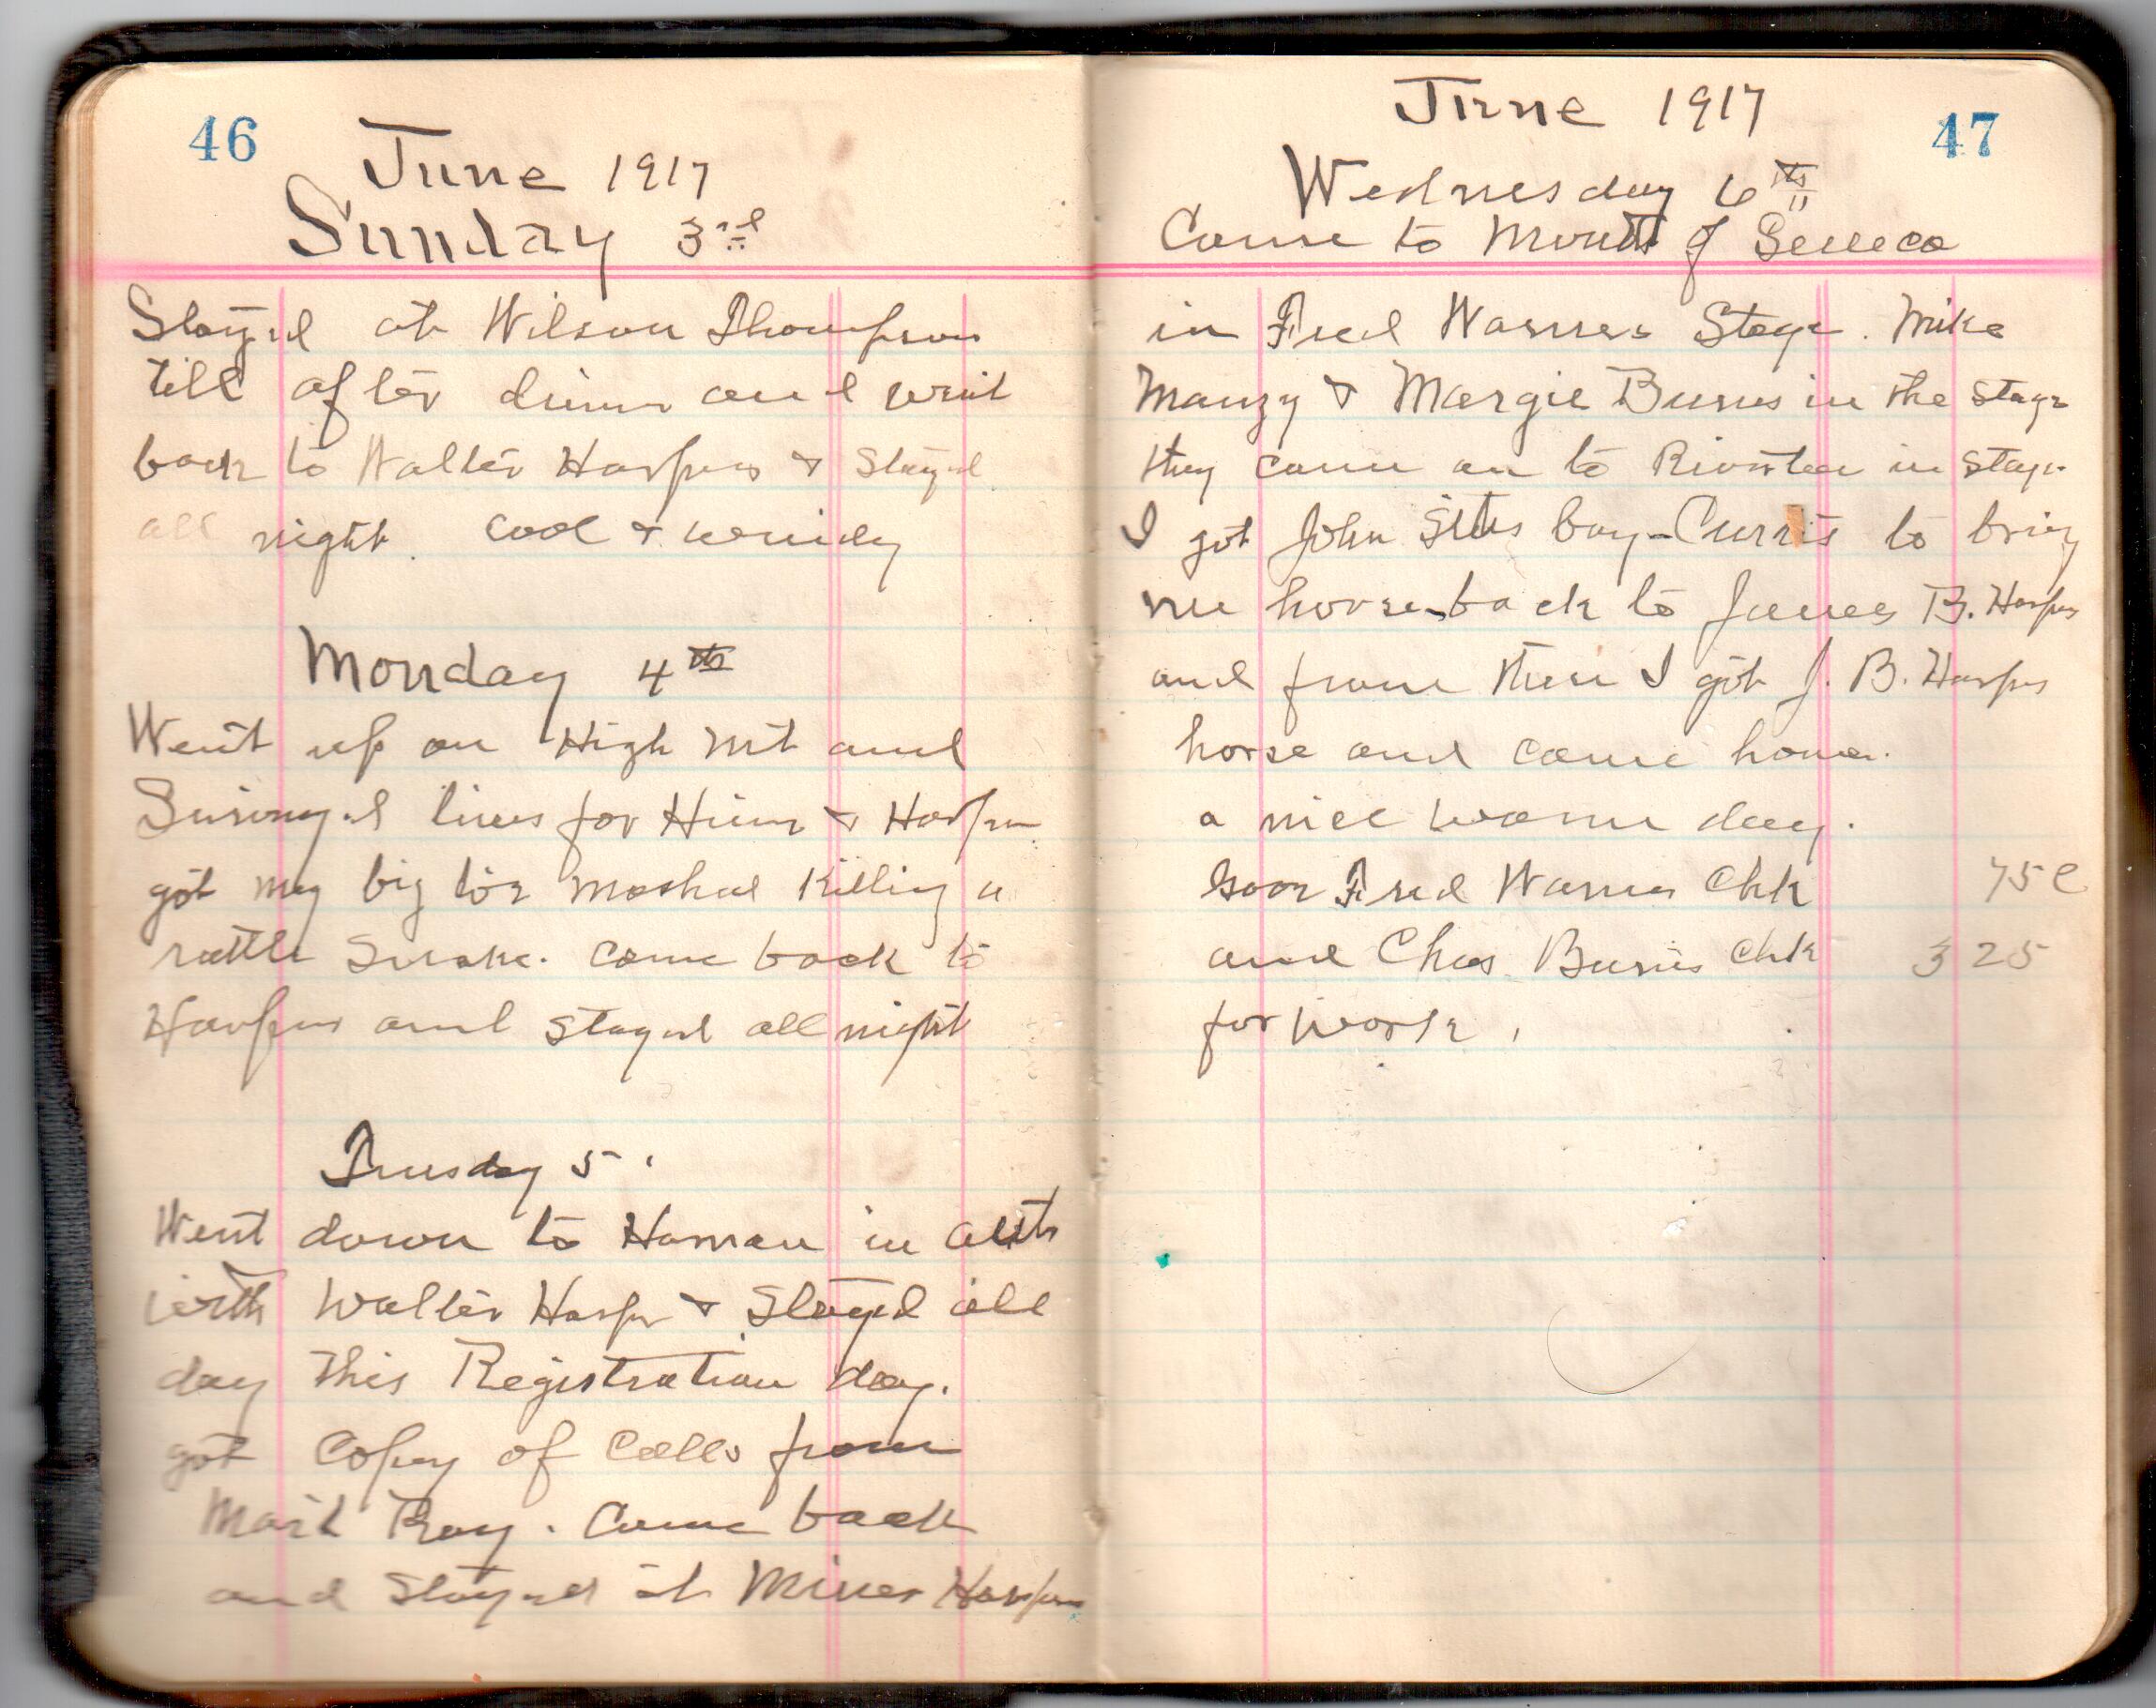 46
June 1917
Sunday 3rd
Stayed at Wilson Thompson
till after dinner and went
back to Walter Harpers & Stayed
all night. Cool & windy
Monday 4th
Went up on High Mt and
Surveyed lines for Hiner & Harper
got my big toe mashed killing a
rattle Snake. Come back to
Harpers and stayed all night
Tuesday 5.
Went down to Harman in auto
with Walter Harper & Stayed all
day This Registration day.
got Copy of Calls from
Roy. Come back
and Stayed at Miner Harpers
June 1917
47
Wednesday 6th
Come to Mouth of Seneca
in Fred Warners Stage. Mike
Mauzy & Margie Burns in the Stage
they came on to Riverton in Stage
I got John Sites boy-Curtis to bring
me horse-back to James B. Harpers
and from there I got J. B. Harpers
horse and come home.
a nice warm day.
Fred Warner Chk 75c
and Chas Burns Chk 3 25
for work.